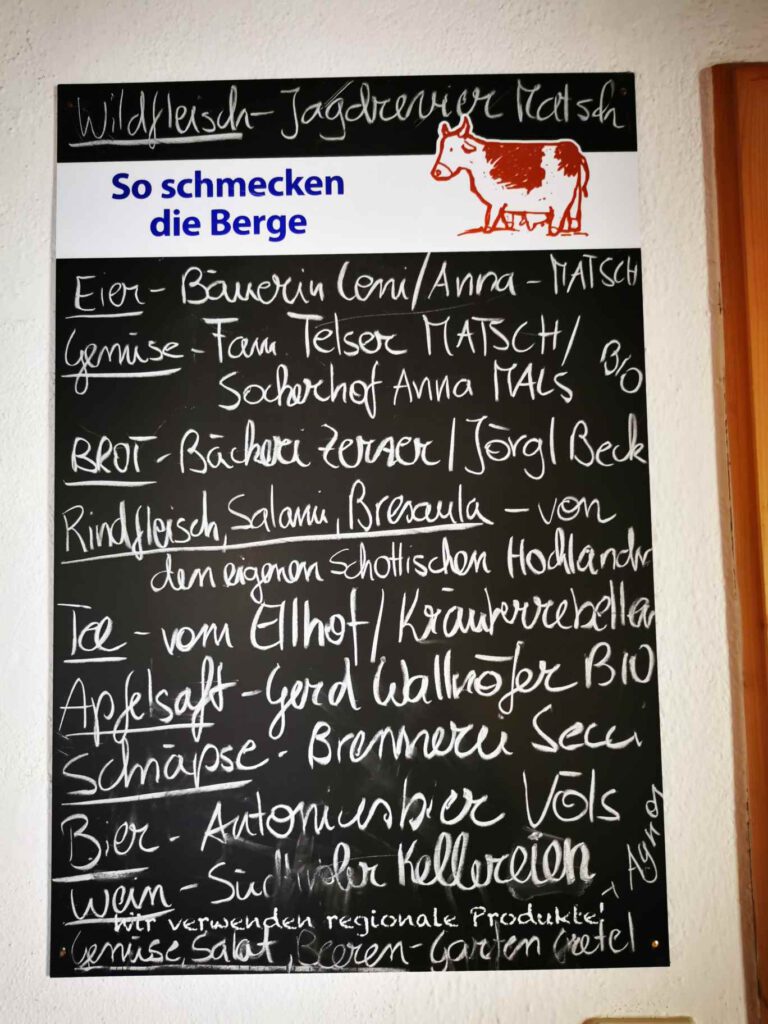 Wildfleisch - Jagdrevier Matsch
So schmecken
die Berge
Eier - Bäuerin Leni/Anna - MATSCH
Gemüse - Fam Telser MATSCH/
Sockerhof Anna MALS BIO
BROT - Bäckerei Zerzer / Jörgl Beck
Rindfleisch, Salami, Bresaula - von
den eigenen Schottischen Hochlandr
Tee - vom Ellhof / Kräuterrebellen
Apfelsaft - Gerd Wallnöfer BIO
Schnäpse - Brennerei Secci
Bier - Antoniusbier Völs
Wein - Südtiroler Kellereien
Wir verwenden regionale Produkte!
Gemüse, Salat, Beeren - Garten Gretel + Agnes